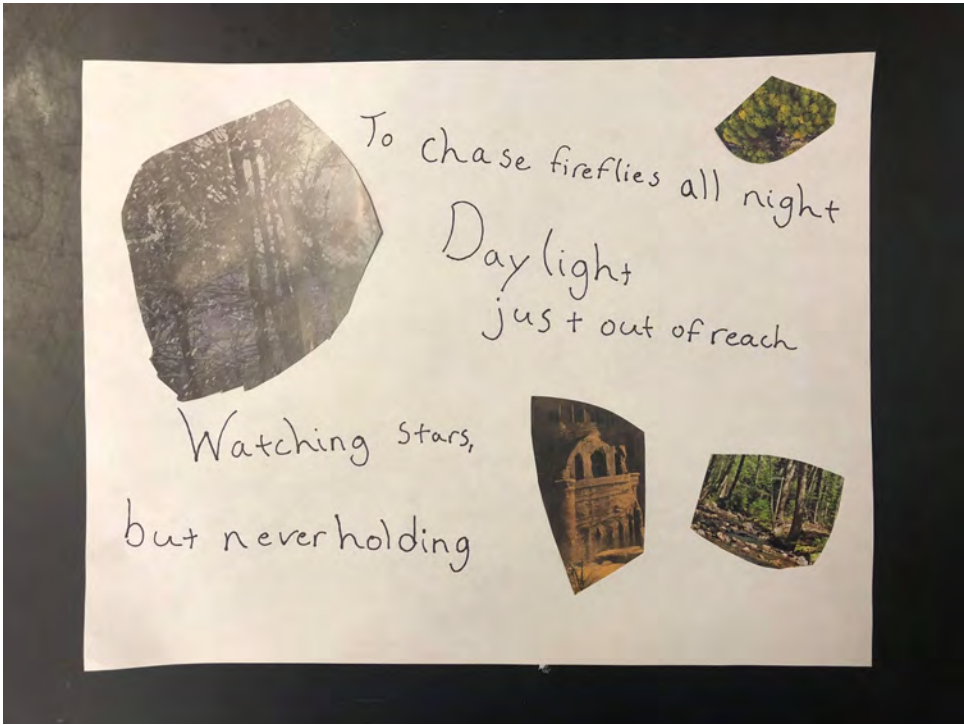 To chase fireflies all night
Daylight
just out of reach
Watching stars,
but never holding